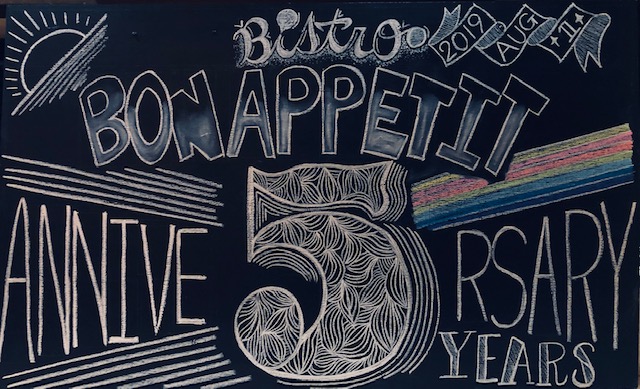 Bistro 2019 AUG 11
BON APPETIT
ANNIVE5RSARY
YEARS